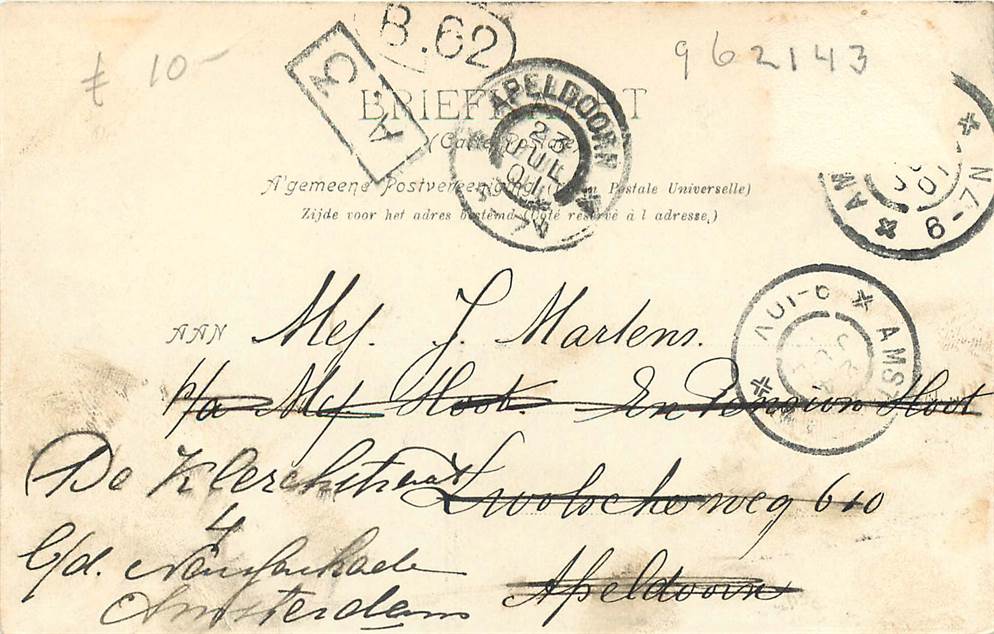 € 10-
B.62
962143
A.3
BRIEFKAART
(Carte Postale)
APELDOORN
23 JUL 01
A'gemeene Postvereeniging (Union Postale Universelle)
Zijde voor het adres bestemd (Côté réservé à l adresse.)
6-7N
AMST
AAN Mej. J. Martens.
p/a Mej Hoot. En Pension Hoot
De Klerckstraat
Zwolscheweg 610
4
b/d. Nassaukade
Amsterdam
Apeldoorn